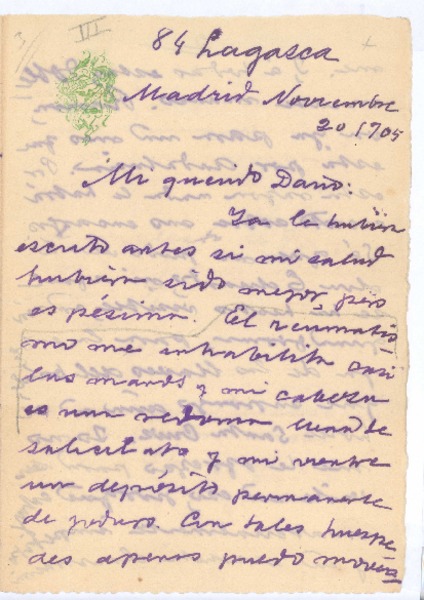 III
84 Lagasca
Madrid Noviembre
20/905
Mi querido Darío:
Ya le hubiera
escrito antes si mi salud
hubiera sido mejor, pero
es pésima. El reumatis
mo me inhabilita casi
las manos y mi cabeza
es una redoma llena de
salicilato y mi vientre
un depósito permanente
de yoduro. Con tales huespe
des apenas puedo mover